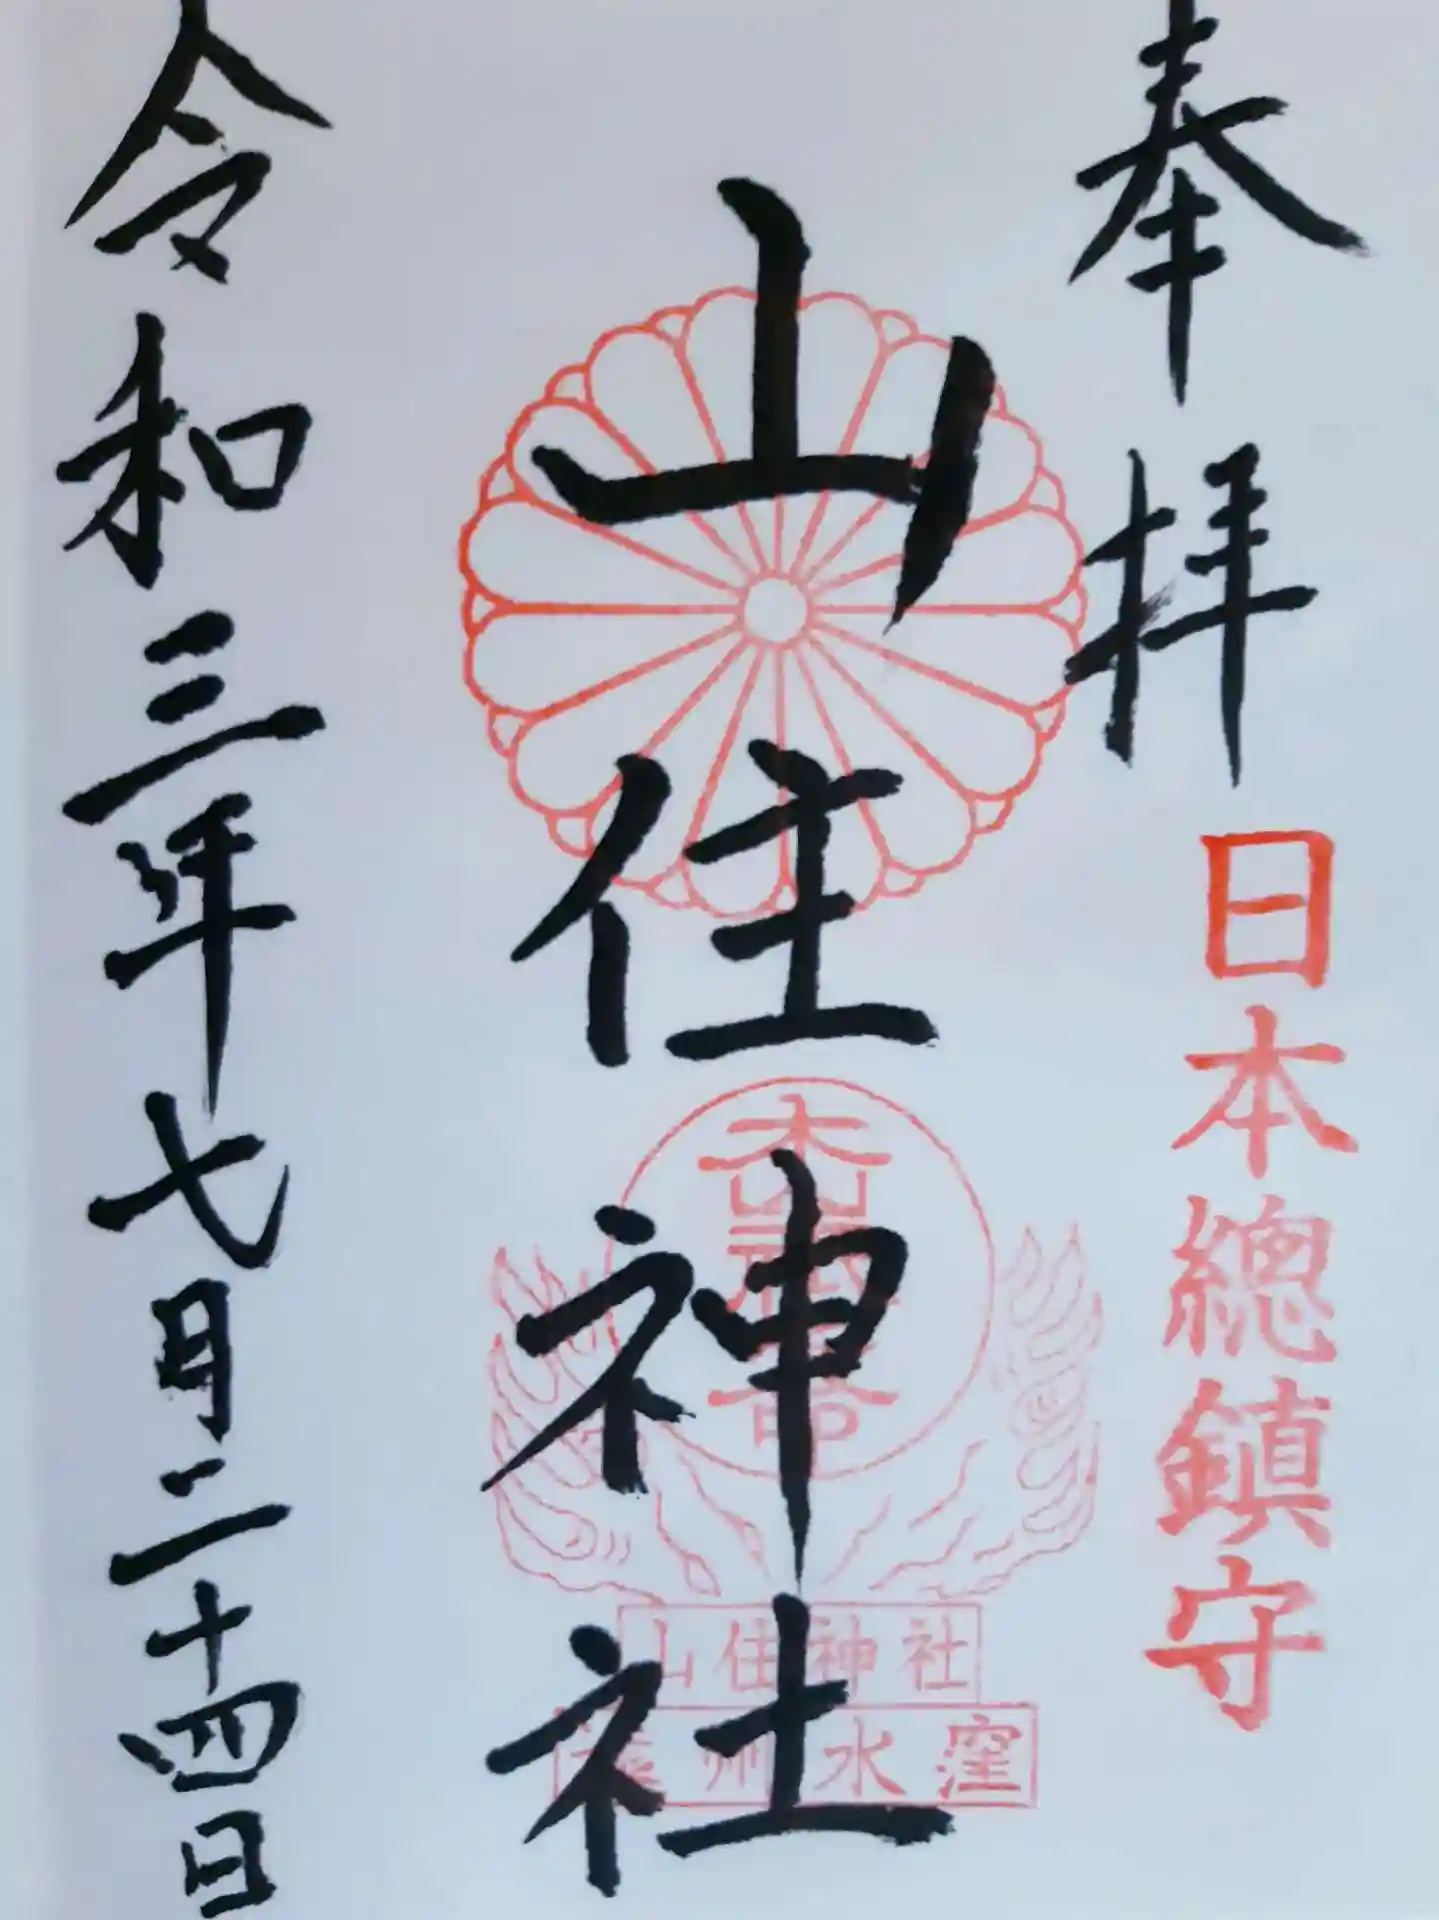 奉拝
日本總鎮守
山住神社
山住神社
遠州水窪
令和三年七月二十四日